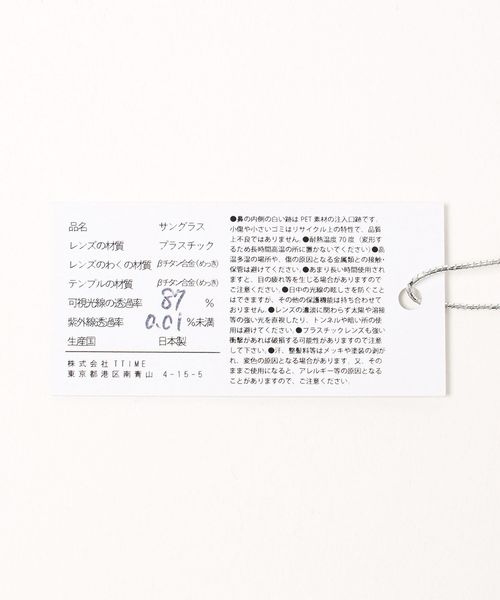 品名 サングラス
レンズの材質 プラスチック
レンズのわくの材質 βチタン合金(めっき)
テンプルの材質 βチタン合金(めっき)
可視光線の透過率 87 %
紫外線透過率 0.01 %未満
生産国 日本製
株式会社 TTIME
東京都港区南青山 4-15-5
●鼻の内側の白い跡は PET 素材の注入口跡です.
小傷や小さいゴミはリサイクル上の特性で、品質
上不良ではありません.●耐熱温度 70 度（変形す
るため長時間高温の所に置かないてください)●高
温多湿の場所や、傷の原因となる金属類との接触・
保管は避けてください.●あまり長い時間使用され
ますと、目の疲れ等を生じる場合がありますので
ご注意ください.●日中の光線の眩しさを防ぐこと
はできますが、その他の保護機能は持ち合わせて
おりません.●レンズの濃淡に関わらず太陽や溶接
等の強い光を直視したり、トンネルや暗い所の使
用は避けてください.●プラスチックレンズも強い
衝撃があれば破損する可能性がありますので注意
して下さい.●汗、整髪料等はメッキや塗装の剥が
れ、変色の原因となる場合があります．又、その
ままご使用になると、アレルギー等の原因となる
ことがありますので、ご注意ください.